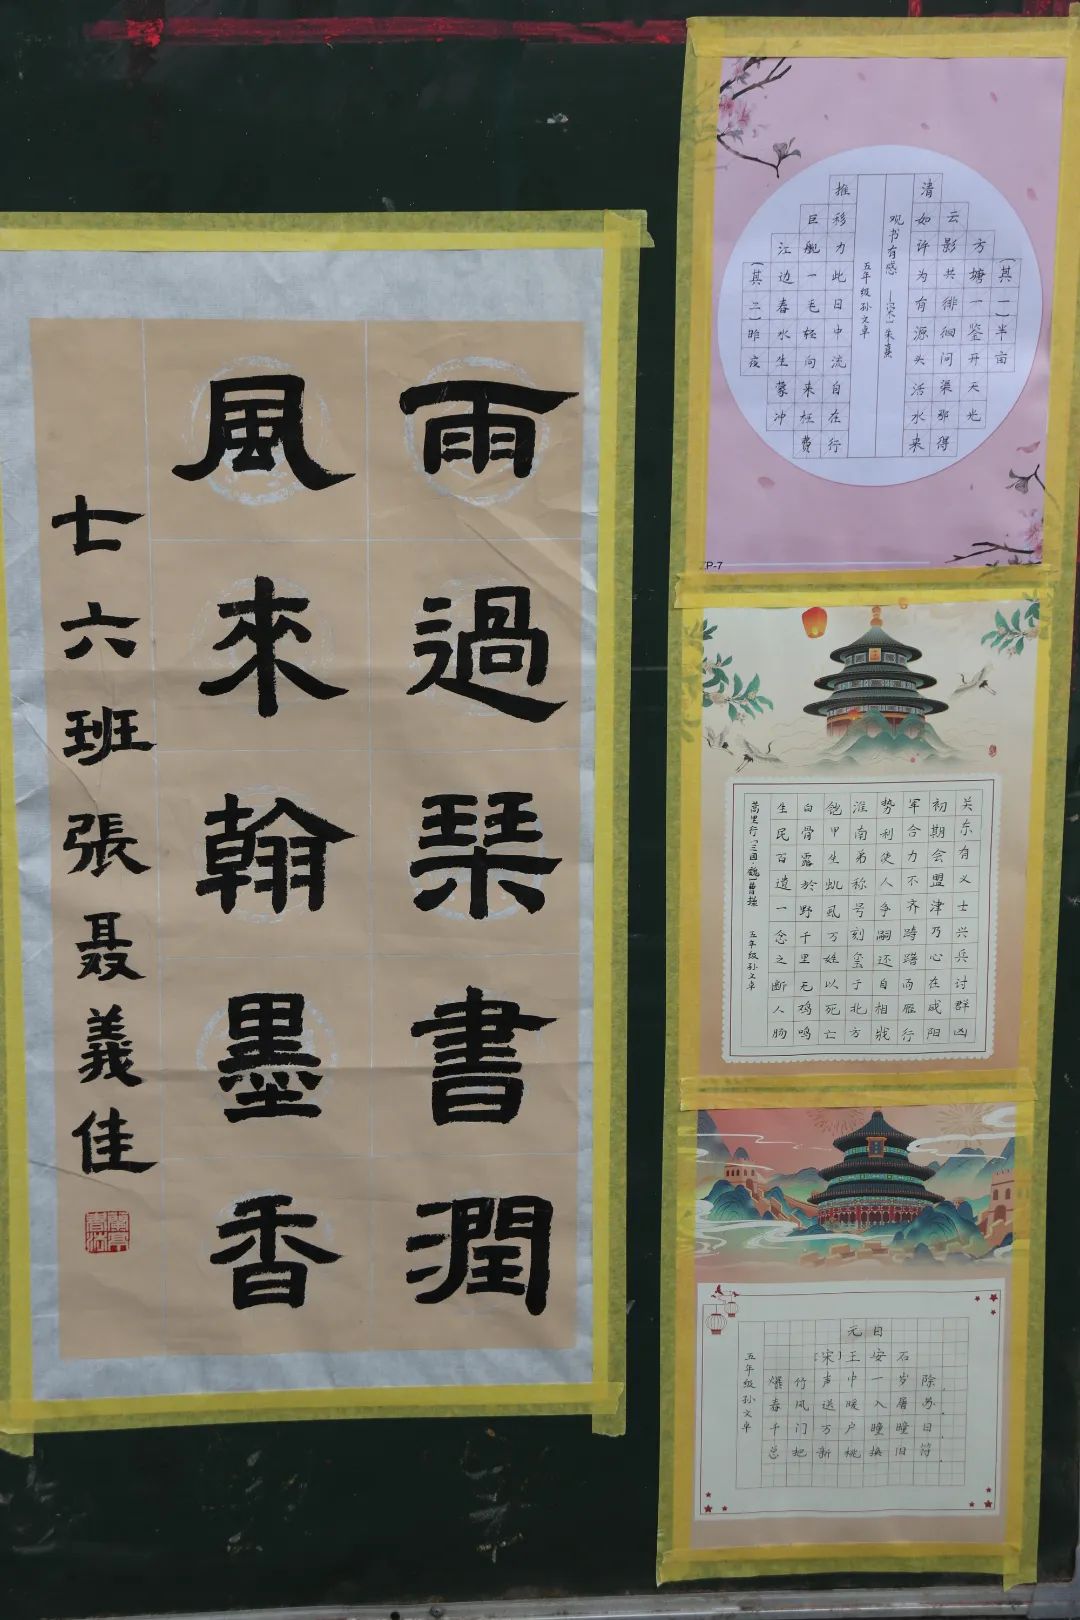 雨過琹書潤
風來翰墨香
七六班張聂義佳
(其一)半亩
方塘一鉴开天光
云影共徘徊问渠那得
清如许为有源头活水来
观书有感 —[宋]朱熹
五年级孙文卓
(其二)昨夜
江边春水生蒙冲
巨舰一毛轻向来枉费
推移力此日中流自在行
P-7
关东有义士兴兵讨群凶
初期会盟津乃心在咸阳
军合力不齐踌躇而雁行
势利使人争嗣还自相戕
淮南弟称号刻玺于北方
铠甲生虮虱万姓以死亡
白骨露於野千里无鸡鸣
生民百遗一念之断人肠
蒿里行「三国·魏」曹操 五年级孙文卓
元日
[宋]王安石
爆竹声中一岁除
春风送暖入屠苏
千门万户曈曈日
总把新桃换旧符
五年级孙文卓